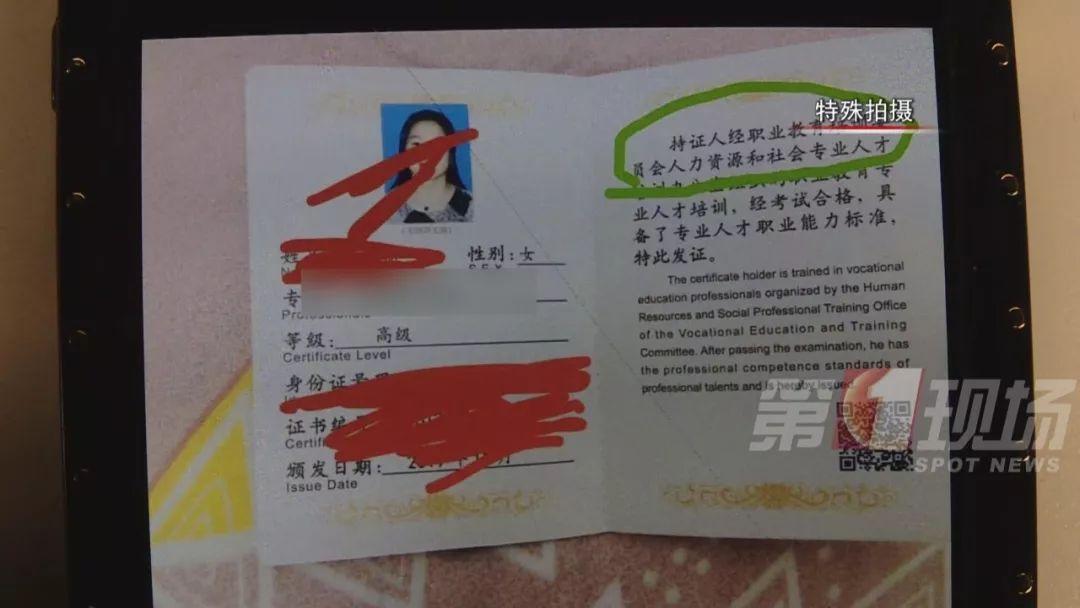 特殊拍摄
性别:女
SEX
专
Professionals
等级: 高级
Certificate Level
身份证号
证书编
Certific
颁发日期:
Issue Date
持证人经职业教育
员会人力资源和社会专业人才
职业教育专
业人才培训,经考试合格,具
备了专业人才职业能力标准,
特此发证。
The certificate holder is trained in vocational
education professionals organized by the Human
Resources and Social Professional Training Office
of the Vocational Education and Training
Committee. After passing the examination, he has
the professional competence standards of
professional talents and is hereby issued
第1现场
SPOT NEWS